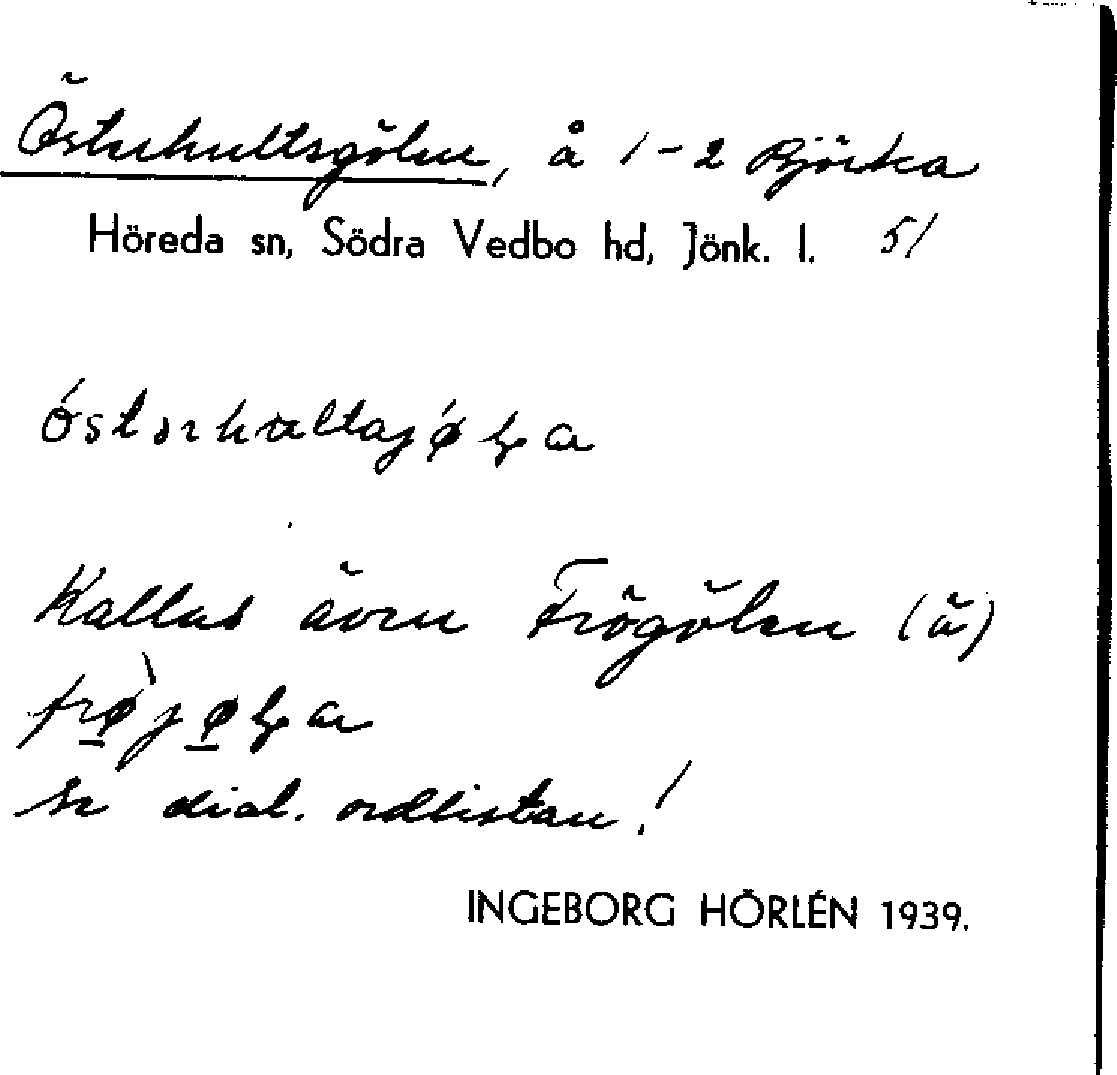 Österhultsgölen, å 1-2 Björka
Höreda sn, Södra Vedbo hd, Jönk. l. 51
Kallas även Frögölen (ä)
Se dial. ordlistan!
INGEBORG HÖRLÉN 1939.